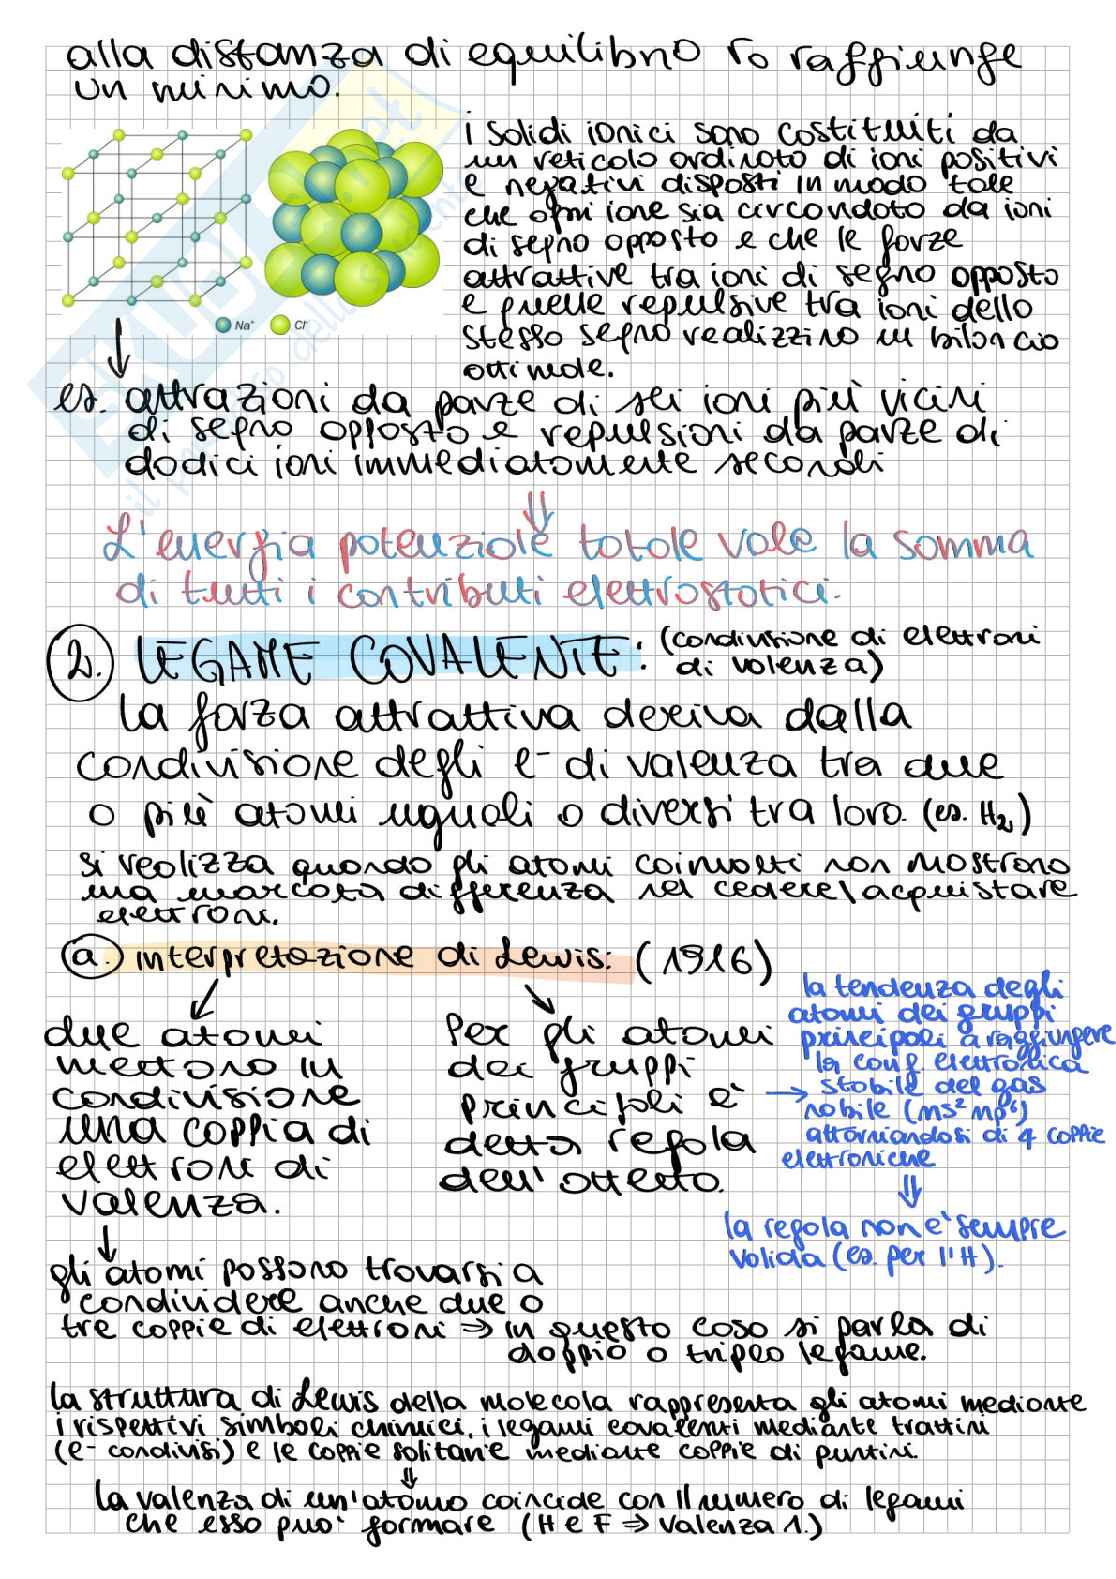 alla distanza di equilibrio r0 raggiunge
un minimo.
i solidi ionici sono costituiti da
un reticolo ordinato di ioni positivi
e negativi disposti in modo tale
che ogni ione sia circondato da ioni
di segno opposto e che le forze
attrattive tra ioni di segno opposto
e quelle repulsive tra ioni dello
stesso segno realizzino un bilancio
ottimale.
Na⁺ Cl⁻
es. attrazioni da parte di sei ioni più vicini
di segno opposto e repulsioni da parte di
dodici ioni immediatamente secondi
⇓
L'energia potenziale totale vale la somma
di tutti i contributi elettrostatici.
2. LEGAME COVALENTE: (condivisione di elettroni
di valenza)
la forza attrattiva deriva dalla
condivisione degli e⁻ di valenza tra due
o più atomi uguali o diversi tra loro. (es. H₂)
si realizza quando gli atomi coinvolti non mostrano
una marcata differenza nel cedere/acquistare
elettroni.
a. interpretazione di Lewis: (1916)
due atomi
mettono in
condivisione
una coppia di
elettroni di
valenza.
Per gli atomi
dei gruppi
principali è
detta regola
dell'ottetto.
la tendenza degli
atomi dei gruppi
principali a raggiungere
la conf. elettronica
→ stabile del gas
nobile (ns² np⁶)
attorniandosi di 4 coppie
elettroniche
⇓
la regola non è sempre
valida (es. per l'H).
gli atomi possono trovarsi a
condividere anche due o
tre coppie di elettroni ⇒ in questo caso si parla di
doppio o triplo legame.
la struttura di Lewis della molecola rappresenta gli atomi mediante
i rispettivi simboli chimici, i legami covalenti mediante trattini
(e⁻ condivisi) e le coppie solitarie mediante coppie di puntini.
⇓
la valenza di un'atomo coincide con il numero di legami
che esso può formare (H e F ⇒ valenza 1.)